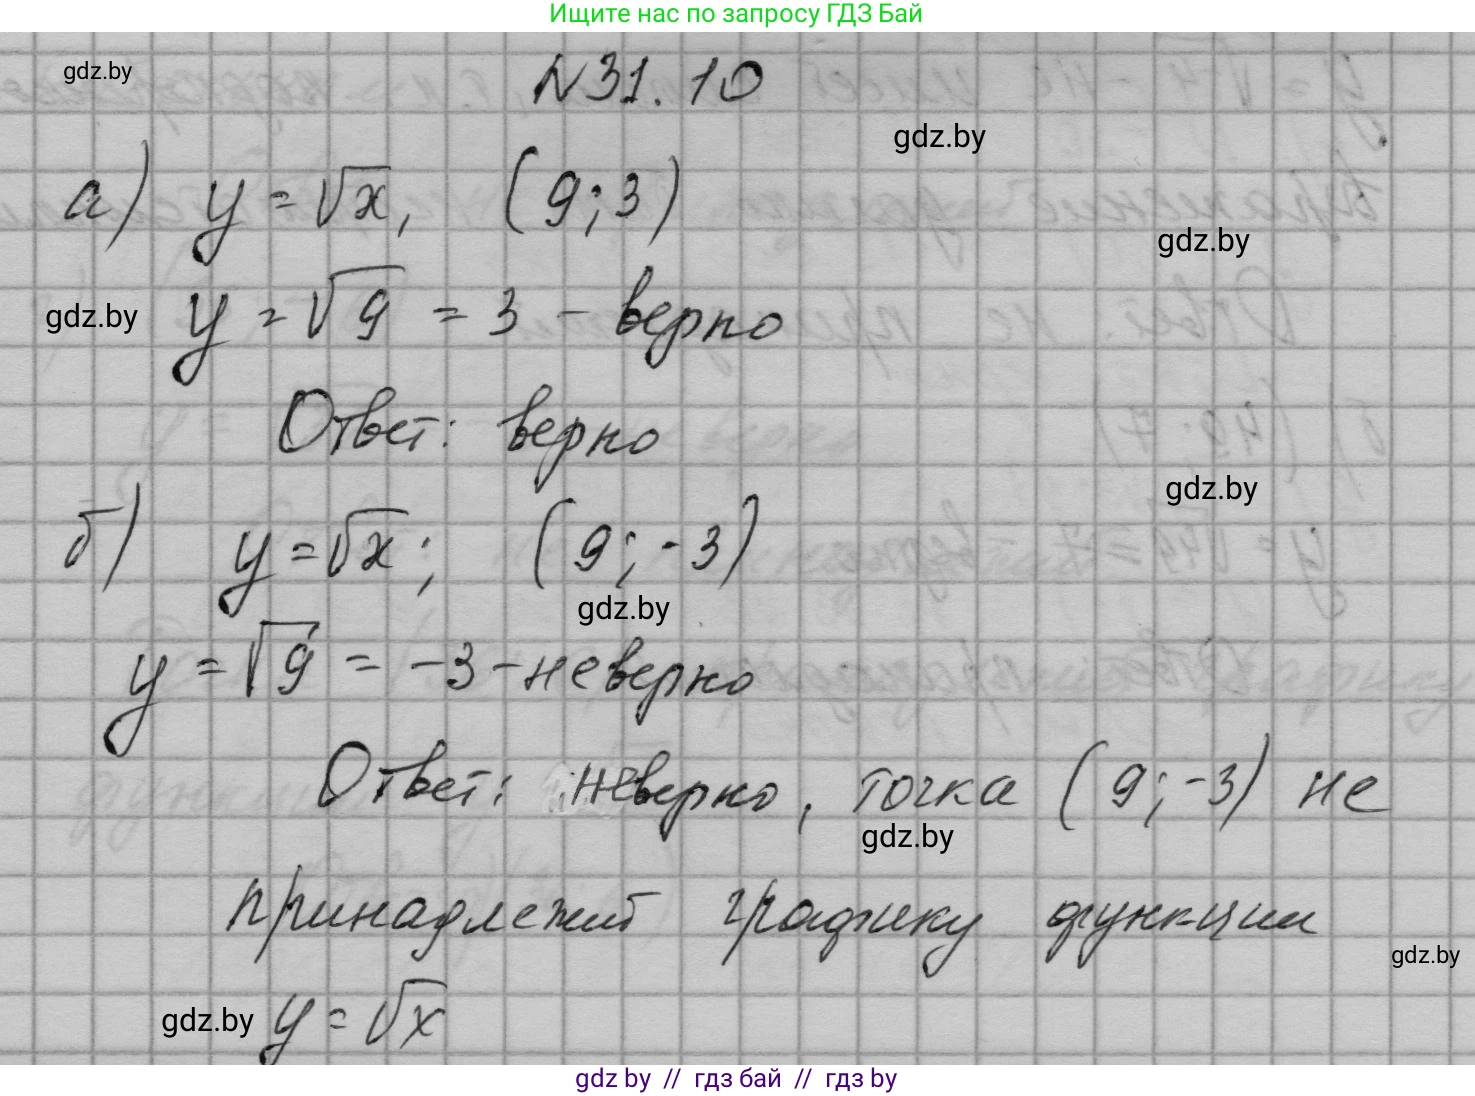 Ищите нас по запросу ГДЗ Бай
gdz.by
№31.10
gdz.by
а) y = √x, (9; 3)
gdz.by
gdz.by
y = √9 = 3 - верно
Ответ: верно
gdz.by
б) y = √x; (9; -3)
gdz.by
y = √9 = -3 - неверно
Ответ: неверно, точка (9; -3) не
gdz.by
принадлежит графику функции
gdz.by
gdz.by
y = √x
gdz by // гдз бай // гдз by